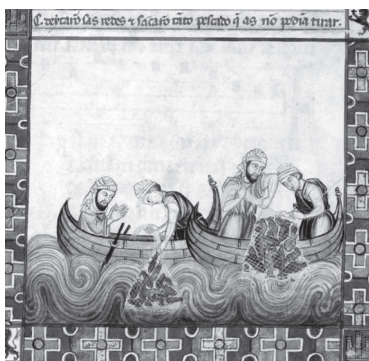 C. deytarõ sas redes ⁊ sacarõ tãto pescado q̃ as nõ podiã tirar.